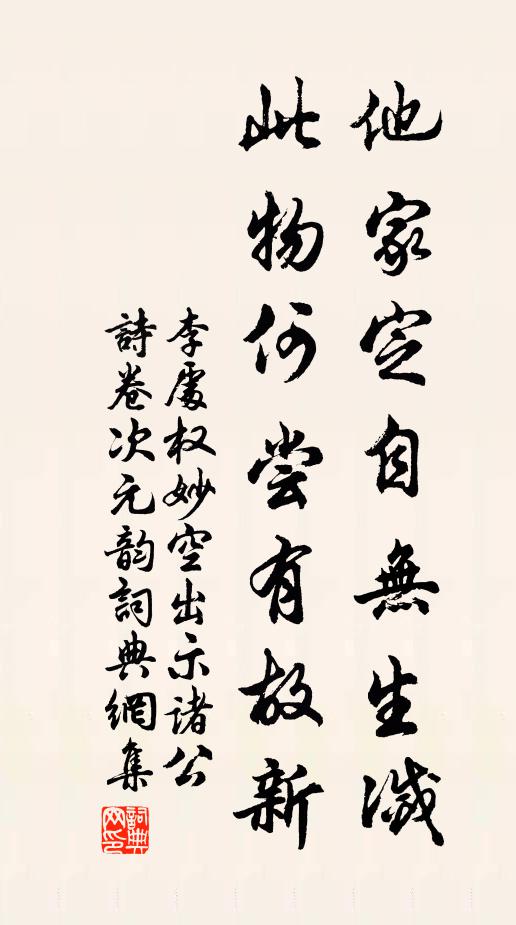 他家定自無生滅
此物何尝有故新
李處权妙空出示诸公
詩卷次元韵詞典網集
詞典網印